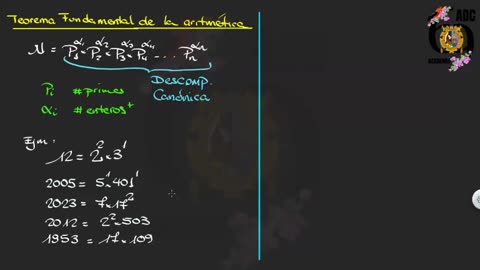 Teorema Fundamental de la aritmética
N = P₁^α₁ · P₂^α₂ · P₃^α₃ · P₄^α₄ . . . Pₙ^αₙ
Descomp.
Canónica
Pi # primos
αi # enteros⁺
Ejm:
12 = 2² × 3¹
2005 = 5¹ × 401¹
2023 = 7 × 17²
2012 = 2² × 503
1953 = 17 × 109
ADC
ACADEMIA